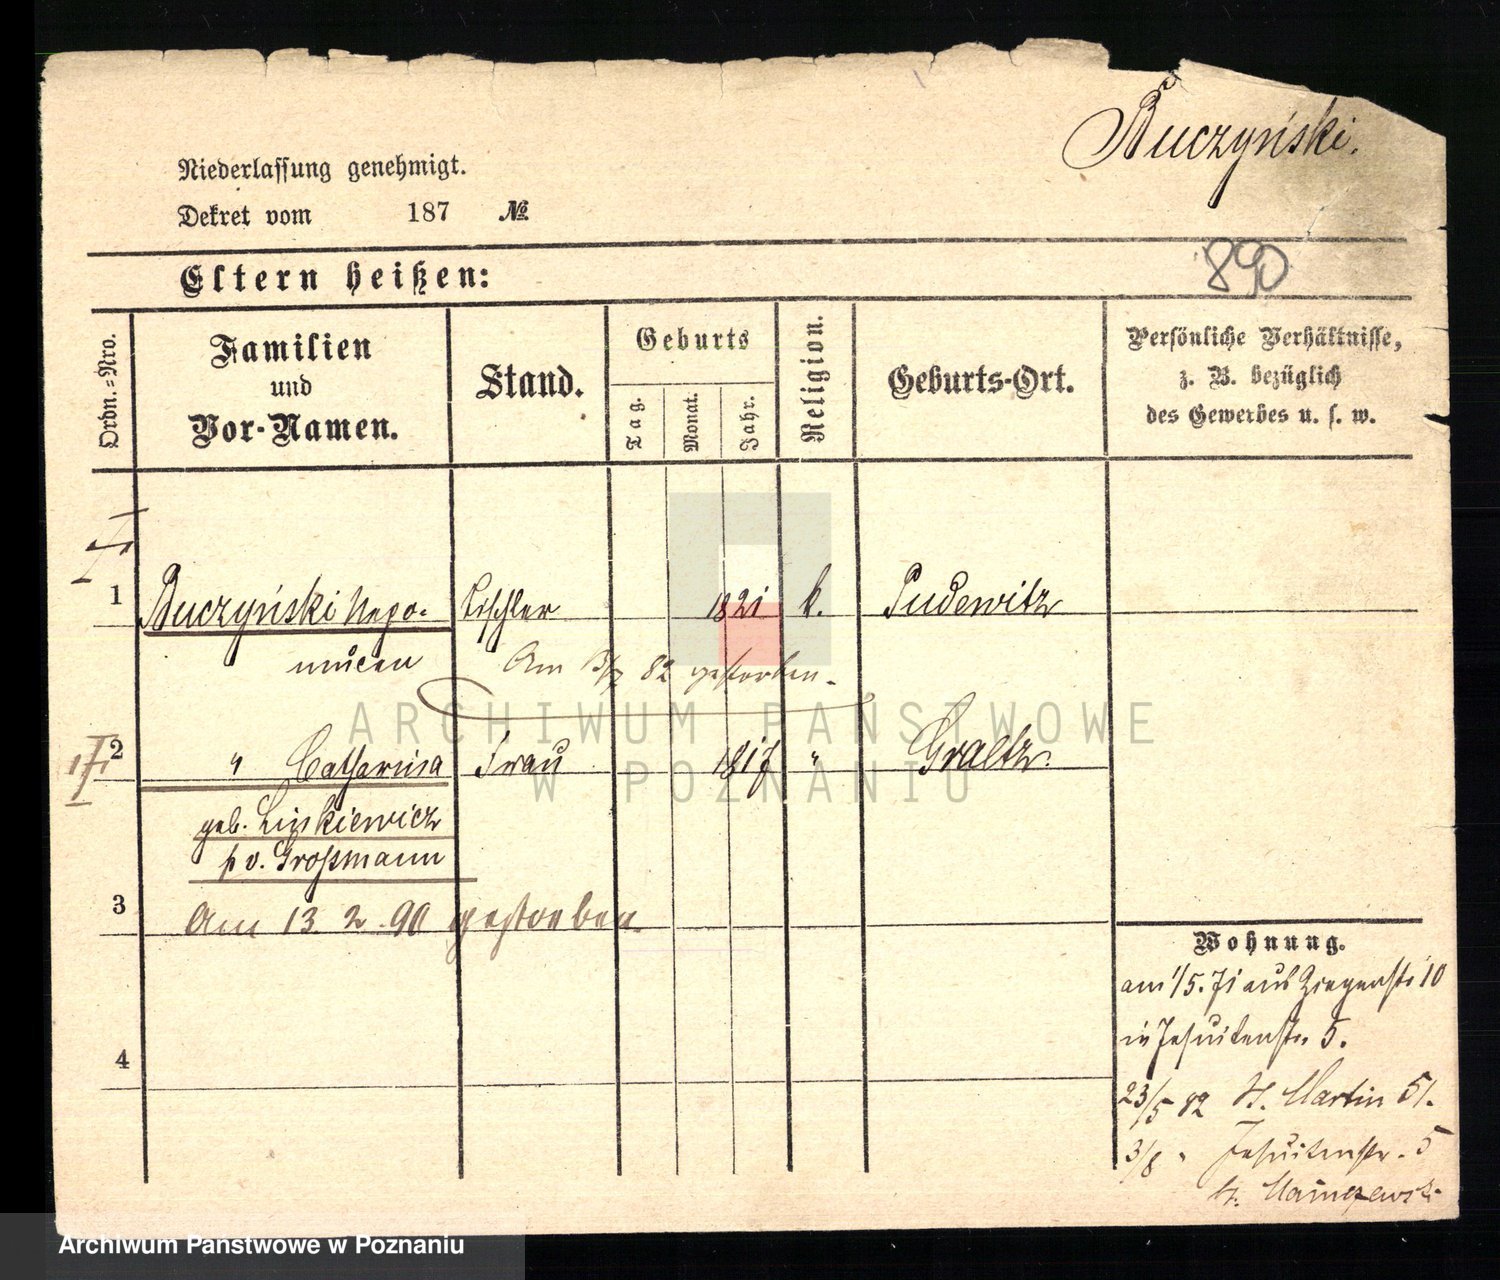 Buczyński.
Niederlassung genehmigt.
Dekret vom 187 №
890
Eltern heißen:
Ordn.=Nro.
Familien
und
Vor-Namen.
Stand.
Geburts
Tag.
Monat.
Jahr.
Religion.
Geburts-Ort.
Persönliche Verhältnisse,
z. B. bezüglich
des Gewerbes u. s. w.
1 Buczyński Nepo- Tischler 1821 k. Pudewitz
mucen Am 3/7 82 gestorben.
ARCHIWUM PAŃSTWOWE
2 " Catharina Frau 1817 " Graetz.
W POZNANIU
geb.
v. Großmann
3 Am 13. 2. 90 gestorben.
Wohnung.
am 1/5. 71 aus Ziegenstr 10
in Jesuitenstr. 5.
4
23/5 82 St. Martin 51.
3/8 " Jesuitenstr. 5
Archiwum Państwowe w Poznaniu